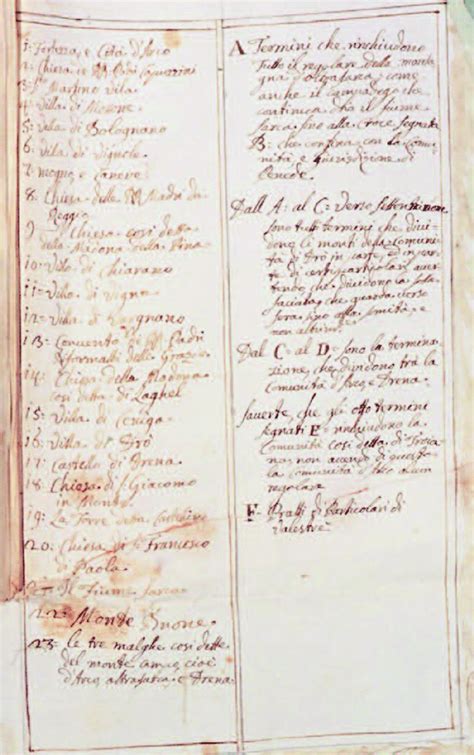 1: Fortezza, e Città d'Arco
2: Chiesa e M. Padri Capuccini
3: S. Martino Villa
4: Villa di Massone
5: Villa di Bolognano
6: Villa di Vignole
7: Mogno e Caneve
8: Chiesa delle M. Madri di
Reggio
9: Chiesa così detta
della Madona della Pina
10: Villa di Chiarano
11: Villa di Vigne
12: Villa di Varignano
13: Convento di M. Padri
Riformati delle Gratie
14: Chiesa della Madona
così detta di Laghel
15: Villa di Ceniga
16: Villa di Drò
17: Castello di Drena
18: Chiesa di S. Giacomo
in Monte
19: La Torre detta
20: Chiesa di S. Francesco
di Paola
21: Il Fiume Sarca
22: Monte
23: le tre malghe così dette
del monte cioè
d'Arco, e Drena
A Termini che rinchiudono
tutto il regolare della monta
gna d'Oltresarca, come
anche il
continua drio il fiume
Sarca, sino alla Croce segnata
B: che confina con la Comu
nità, e giurisdizione di
Dall A: al C: verso settentrione
sono tutti termini che divi
dono li monti della comuni
tà di Drò in parte, ed in par
te di certi particolari, aver
tendo che dividono la sola
faciata che guarda verso
sera sino alla somità, e
non altrimè
Dal C: al D: sono la termina
zione, che dividono trà la
Comunità d'Arco e Drena.
s'averte, che gli otto termini
segnati E: rinchiudono la
Comunità così detta di Troia
na, non avendo di questa
la comunità d'Arco alcun
regolare
F: Pratti di Particolari di